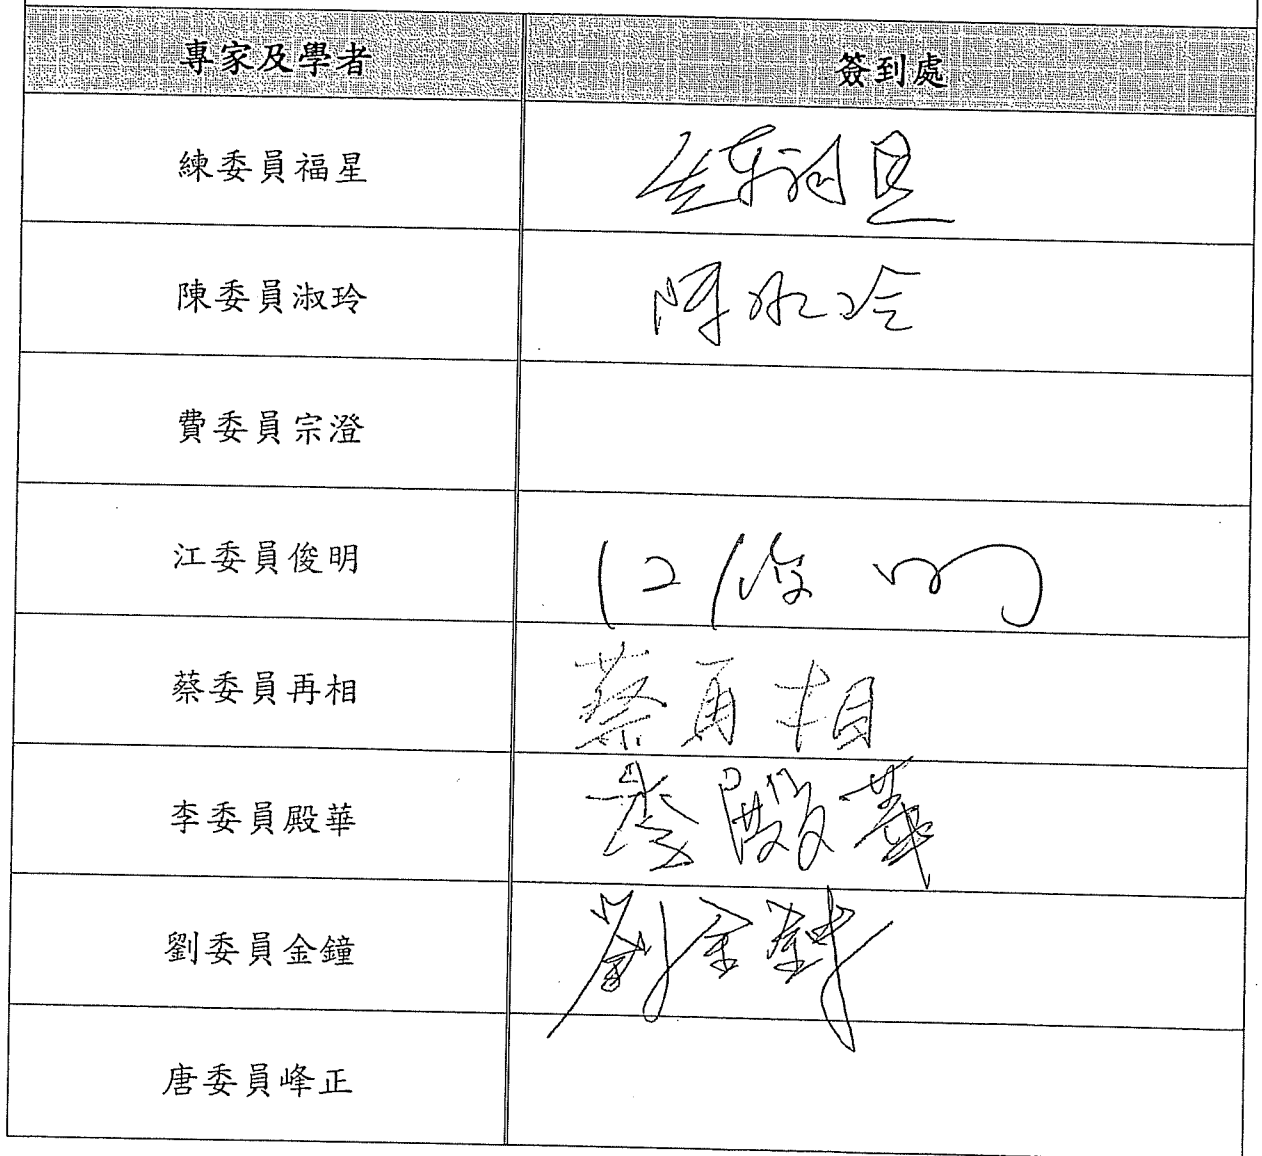 專家及學者 簽到處
練委員福星 練福星
陳委員淑玲 陳淑玲
費委員宗澄
江委員俊明 江俊明
蔡委員再相 蔡再相
李委員殿華 李殿華
劉委員金鐘 劉金鐘
唐委員峰正